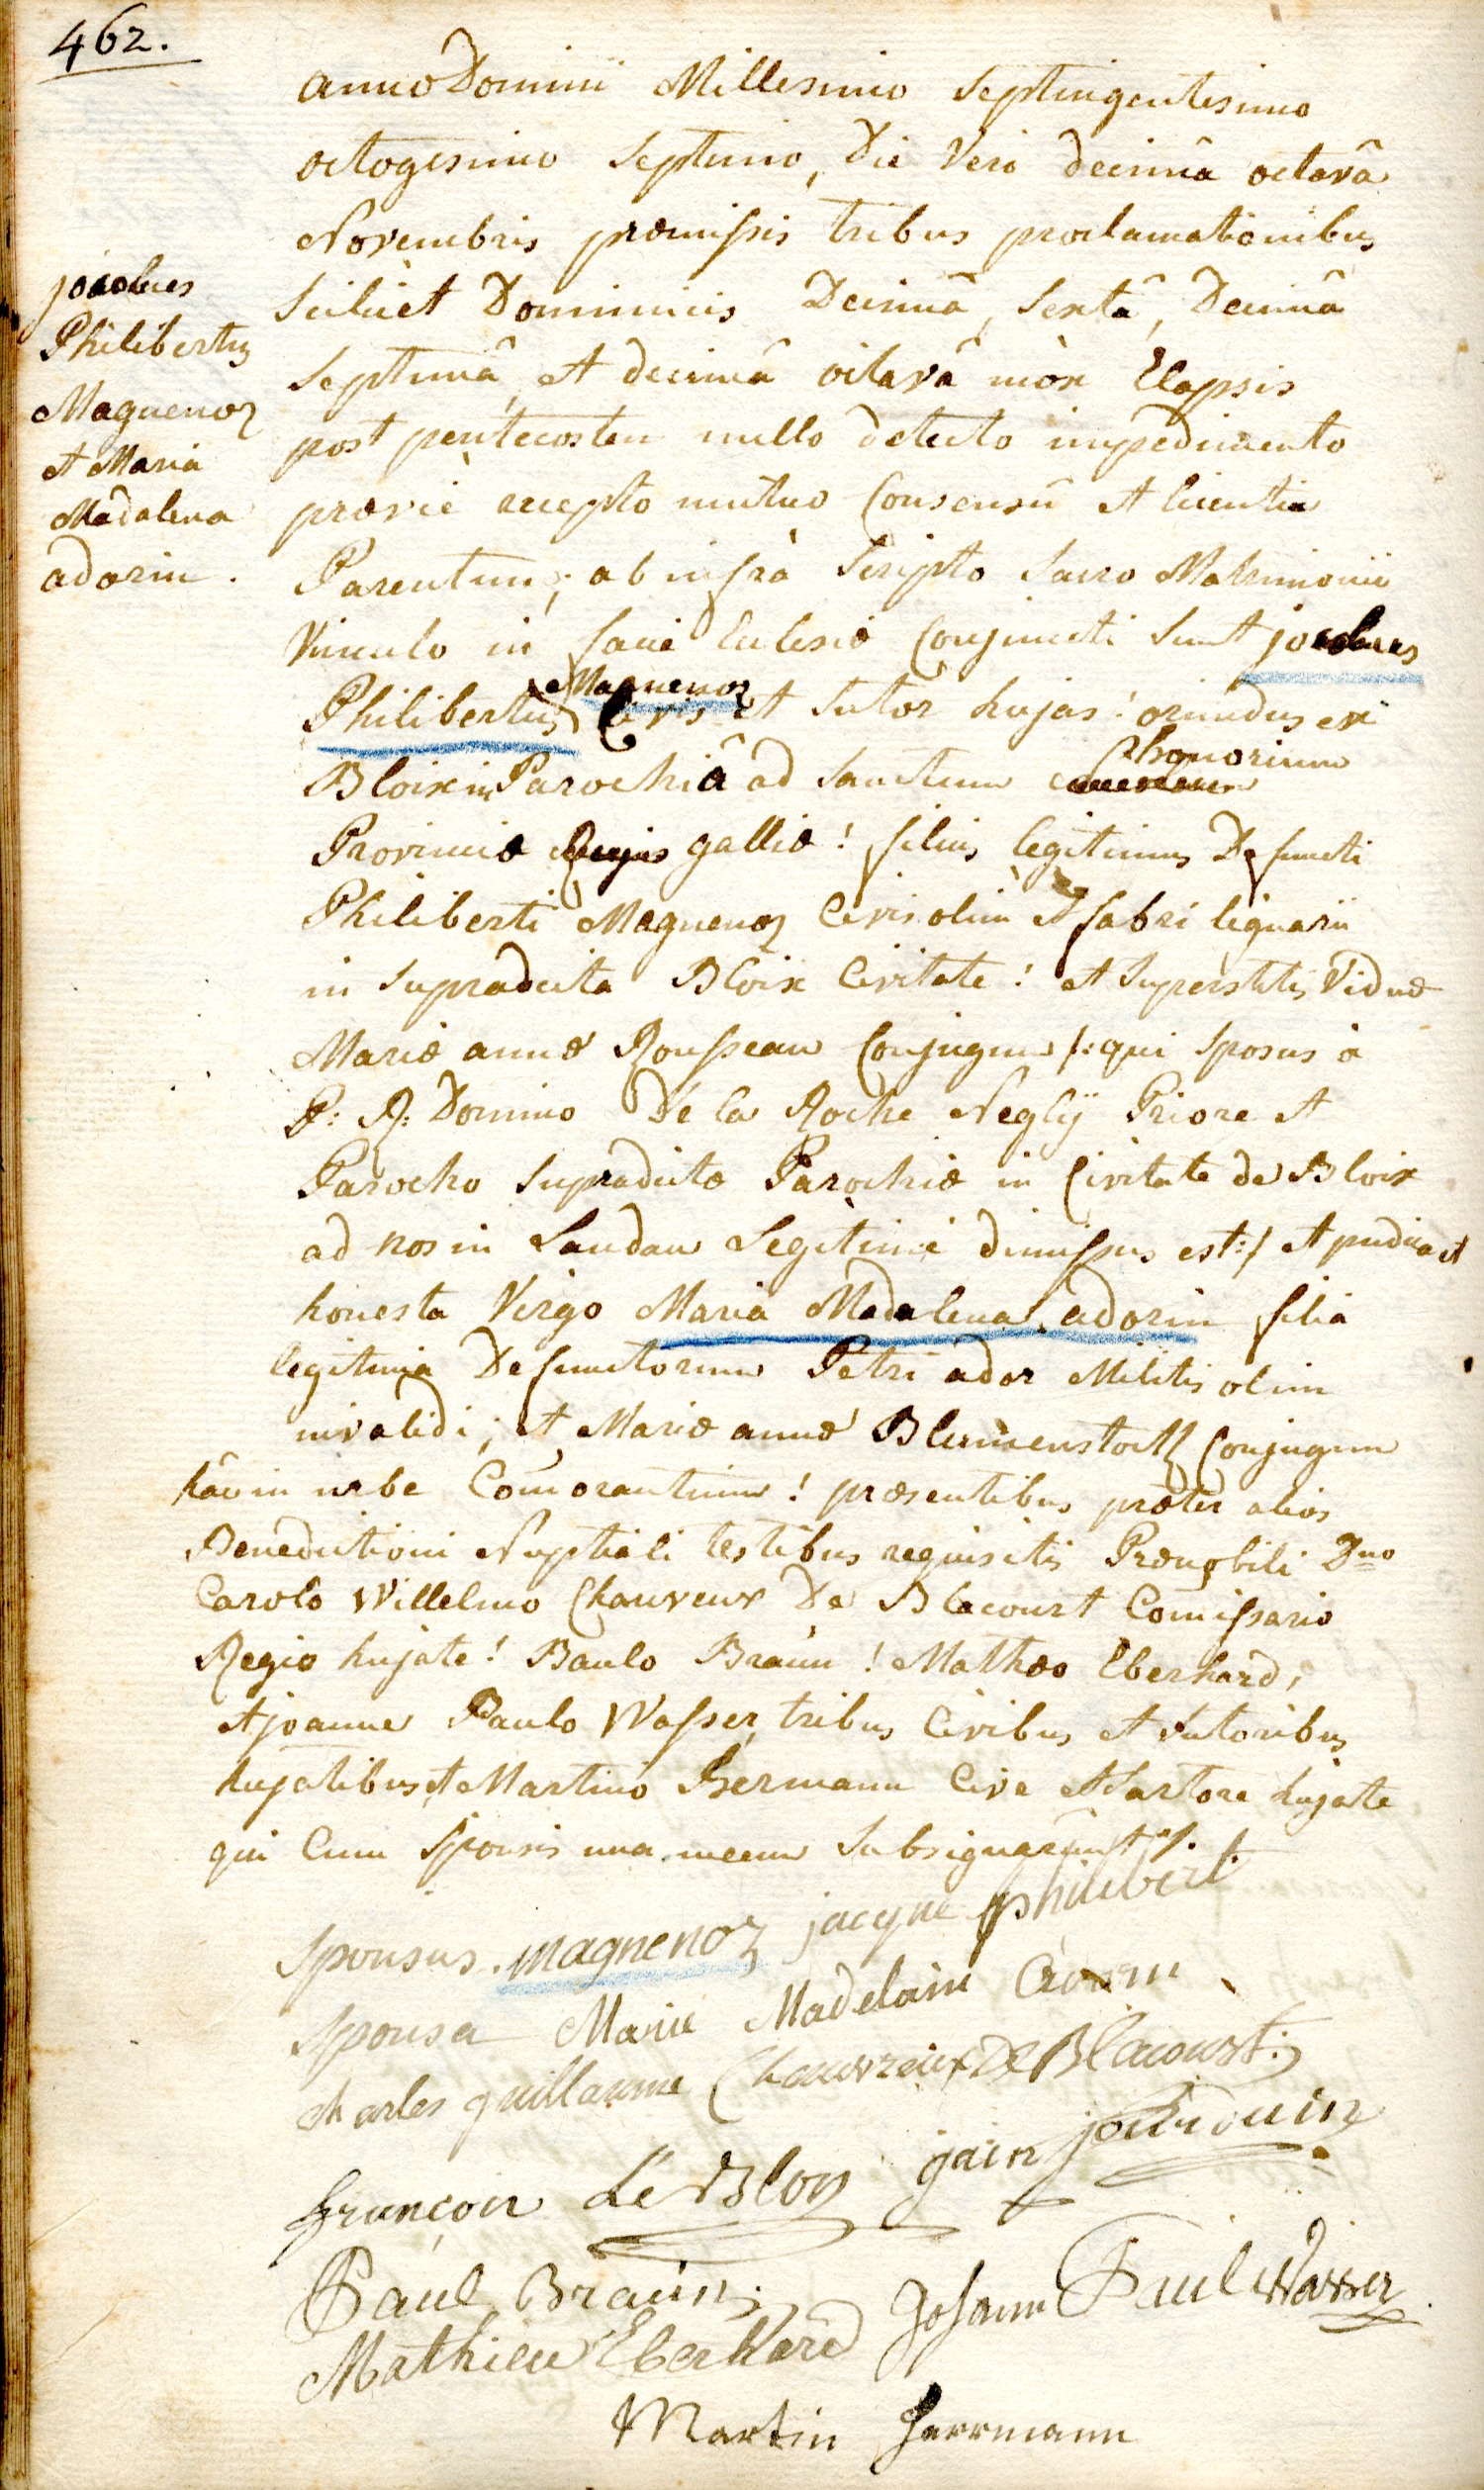 462.
anno Domini Millesimo Septingentesimo
octogesimo Septimo, Die Vero decimâ octavâ
Novembris præmissis tribus proclamationibus
Scilicet Dominicis Decimâ, Sextâ, Decimâ
Septimâ, et decimâ octavâ mòx Elapsis
post pentecosten nullo detecto impedimento
prævie recepto mutuo Consensû et licentia
Parentum; ab infrà Scripto Sacro Matrimonii
Vinculo in facie Eclesiæ Conjuncti Sunt
Philibertus Magnenoz Civis et Sutor hujas! oriundus ex
Bloix in Parochiâ ad Sanctum Honorium
Provinciæ gallia! filius legitimus Defuncti
Philiberti Magnenoz Civis olim et fabri lignarii
in Supradicta Bloix Civitate! et Superstitis Viduæ
Mariæ annæ Rousseau Conjugum /: qui Sposus à
P: R: Domino De la Roche Neglÿ Priore et
Parocho Supradictæ Parochiæ in Civitate de Bloix
ad nos in Landau Legitimè dimissus est :/ et pudica et
honesta Virgo Maria Madalena adorin filia
legitima Defunctorum Petri ador Militis olim
invalidi; et Mariæ annæ Blumenstock Conjugum
hâc in urbe Comorantium! præsentibus præter alios
Benedictioni Nuptiali testibus requisitis Prænobili Dno
Carolo Willelmo Chauveux De Blacourt Comissario
Regio hujate! Baulo Braun! Mathæo Eberhard,
et joanne Paulo Wasser, tribus Civibus et Sutoribus
hujatibus, et Martino Hermann Cive et Sartore hujate
qui Cum Sponsis una mecum Subsignarunt /.
Philibertus
Magnenoz
et Maria
Madalena
adorin.
Sponsus. magnenoz jacque philibert
Sponsa Marie Madelaine
charles guillaume Chauvreux De Blacourt:
françois Le Blon
Paul Braun; Johann Paul Wasser
Mathieu Eberhard
Martin Herrmann